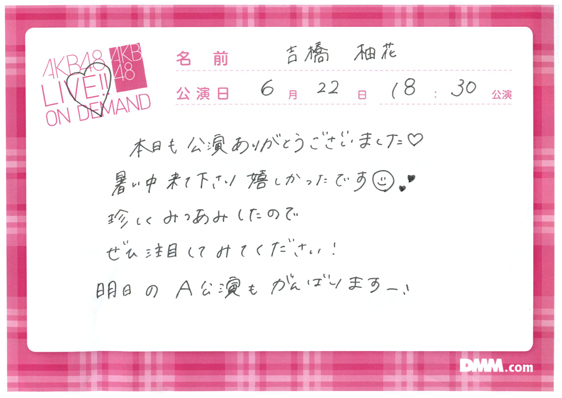 AKB48
LIVE!!
ON DEMAND
AKB
48
名前 吉橋 柚花
公演日 6月 22日 18:30 公演
本日も公演ありがとうございました♡
暑い中来て下さり嬉しかったです☺♥
珍しくみつあみしたので
ぜひ注目してみてください!
明日のA公演もがんばりますー!
DMM.com